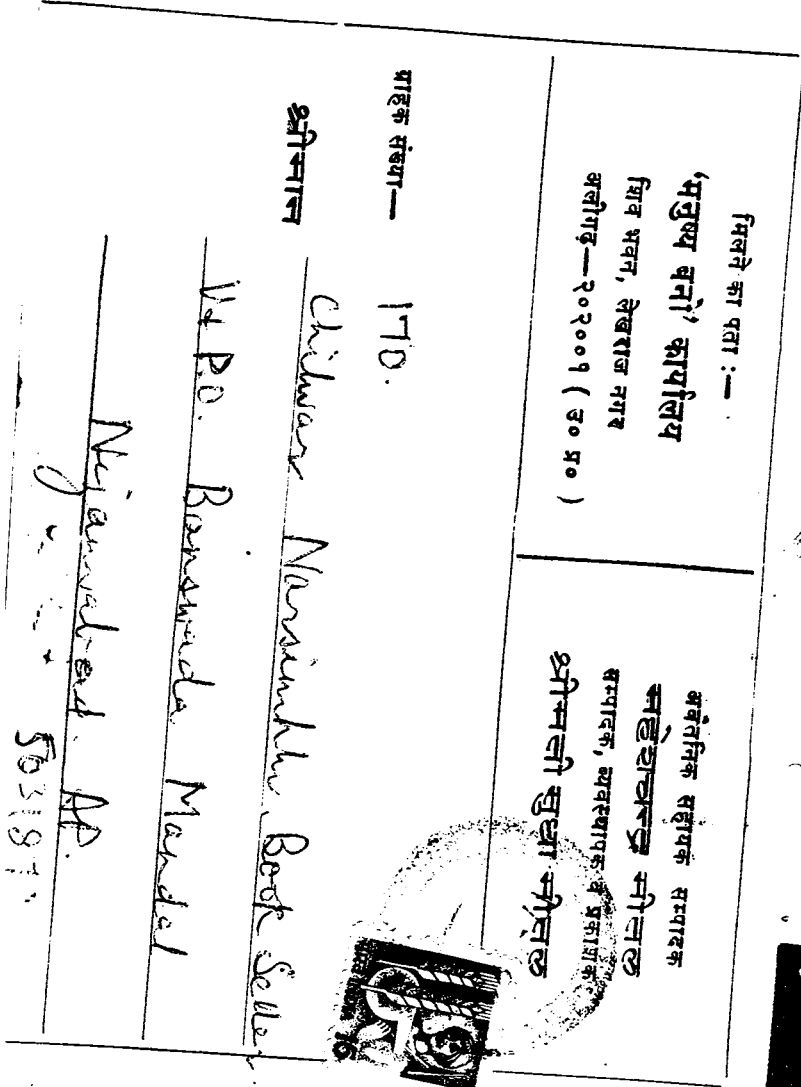 मिलने का पता :—
'मनुष्य बनो' कार्यालय
शिव भवन, लेखराज नगर
अलीगढ़—२०२००१ ( उ० प्र० )
अवैतनिक सहायक सम्पादक
महेशचन्द्र मीतल
सम्पादक, व्यवस्थापक व प्रकाशक
श्रीमती सुधा मीतल
ग्राहक संख्या— 170.
श्रीमान
Narsimhlu Book Seller
V & P.O. Banswada Mandal
Nizamabad. AP.